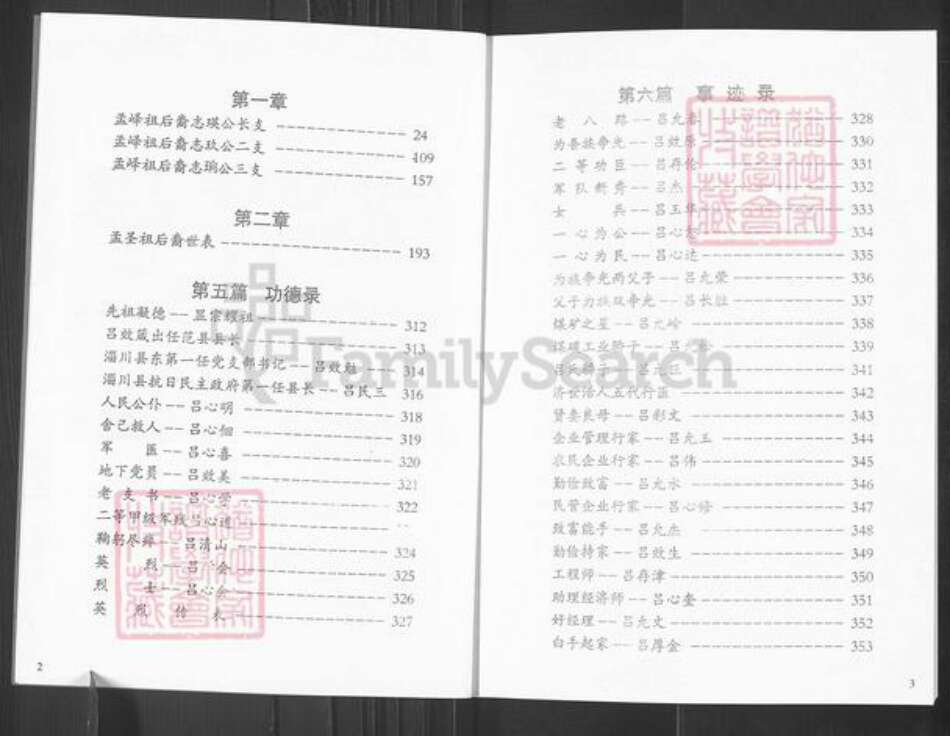 第一章
孟峄祖后裔志瑛公长支 24
孟峄祖后裔志玖公二支 109
孟峄祖后裔志瑞公三支 157
第二章
孟圣祖后裔世表 193
第五篇 功德录
先祖凝德——显宗耀祖 312
吕效葳出任范县县长 313
淄川县东第一任党支部书记——吕效 314
淄川县抗日民主政府第一任县长——吕民三 316
人民公仆——吕心明 318
舍己救人——吕心 319
军 医——吕心喜 320
地下党员——吕效美 321
老支书——吕心学 322
二等甲级军残吕心
鞠躬尽瘁——吕清山 324
英 烈——吕 会 325
烈 士——吕心会 326
英 烈 传 327
2
第六篇 事迹录
老八路——吕允 328
为吾族争光——吕效 330
二等功臣——吕存 331
军队新秀——吕杰 332
女 兵——吕玉华 333
一心为公——吕心 334
一心为民——吕心达 335
为族争光两父子——吕允荣 336
父子为族双争光——吕长胜 337
煤矿之星——吕允岭 338
煤矿工业骄子——吕 339
吕 341
济世治人五代行医 342
贤妻良母——吕彩文 343
企业管理行家——吕允玉 344
农民企业行家——吕伟 345
勤俭致富——吕允水 346
民营企业行家——吕心修 347
致富能手——吕允杰 348
勤俭持家——吕效生 349
工程师——吕存津 350
助理经济师——吕心奎 351
好经理——吕允文 352
白手起家——吕厚金 353
3
FamilySearch